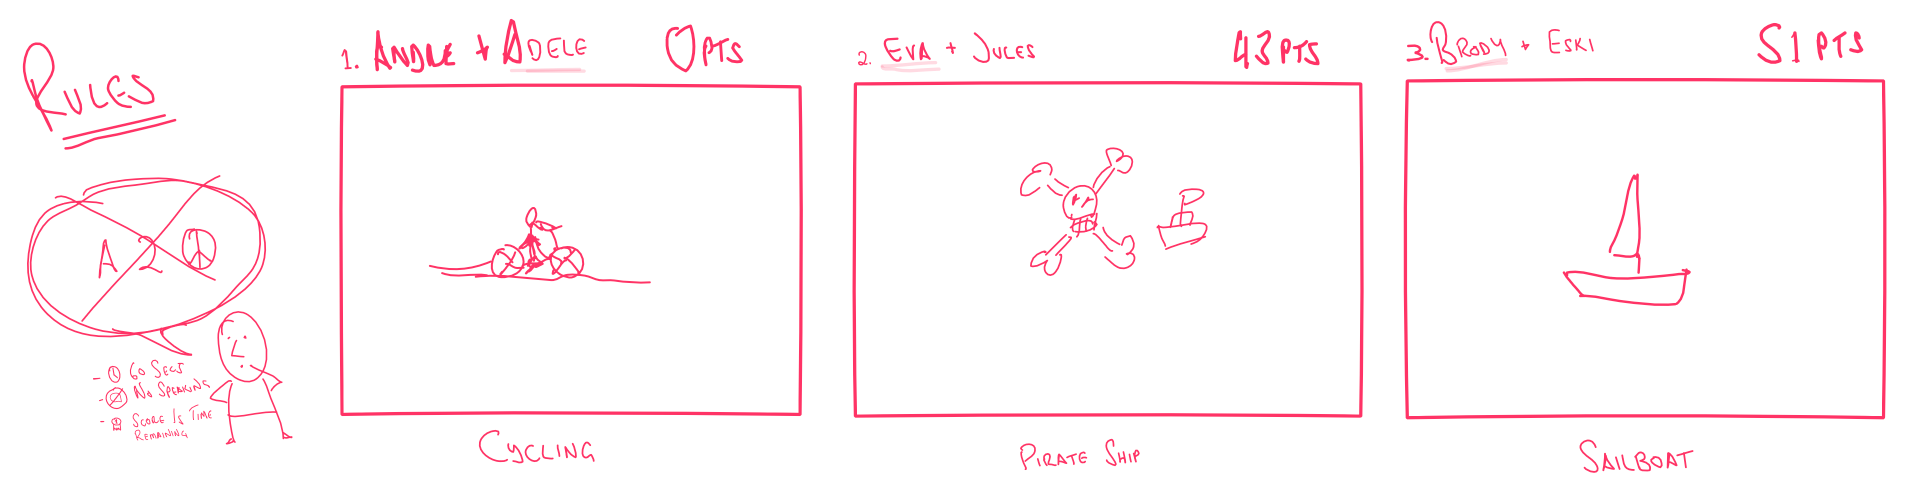 RULES
A 2
- 60 SECS
- NO SPEAKING
- SCORE IS TIME
REMAINING
1. ANDRE + ADELE 0 PTS
CYCLING
2. EVA + JULES 43 PTS
PIRATE SHIP
3. BRODY + ESKI 51 PTS
SAILBOAT